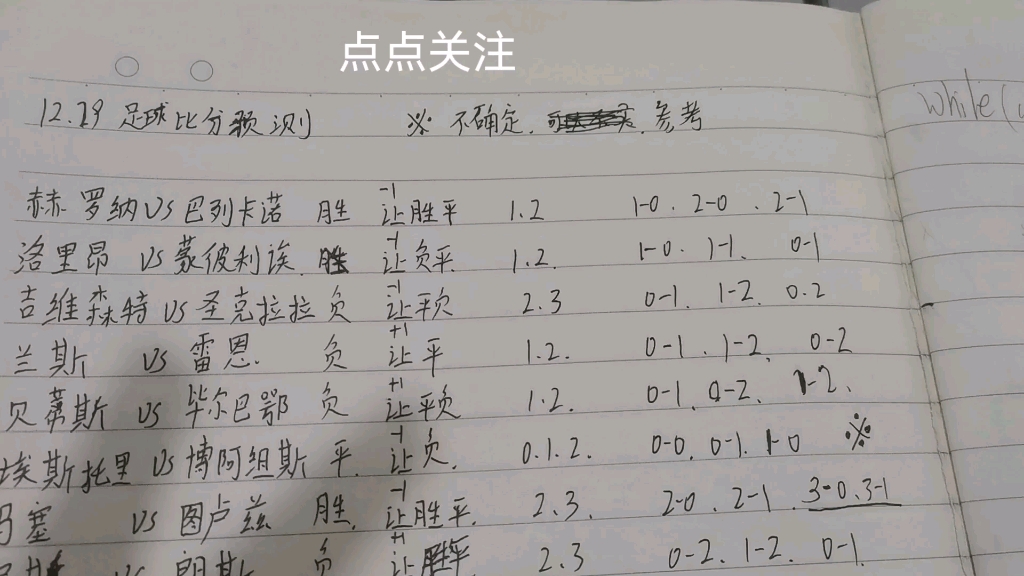 点点关注
12.29 足球比分预测 ※ 不确定. 参考
while(
赫罗纳VS巴列卡诺 胜 -1让胜平 1.2 1-0. 2-0. 2-1
洛里昂 VS 蒙彼利埃. 胜 -1让负平. 1.2. 1-0. 1-1. 0-1
吉维森特 VS 圣克拉拉 负 -1让平负 2.3 0-1. 1-2. 0.2
兰斯 VS 雷恩. 负 +1让平 1.2. 0-1. 1-2. 0-2
贝蒂斯 VS 毕尔巴鄂 负 +1让平负 1.2. 0-1. 0-2. 1-2.
埃斯托里 VS 博阿维斯 平. -1让负. 0.1.2. 0-0. 0-1. 1-0 ※
马塞 VS 图卢兹 胜. -1让胜平. 2.3. 2-0. 2-1. 3-0.3-1
VS 朗斯 负 +1让胜平 2.3 0-2. 1-2. 0-1.